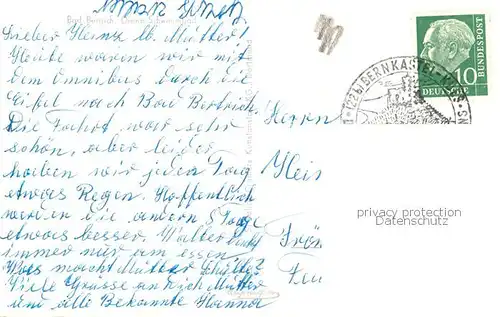 Bad Bertrich
Lieber Heinz u. Mutter!
Heute waren wir mit
dem Omnibus durch die
Eifel nach Bad Bertrich.
Die Fahrt war sehr
schön, aber leider
haben wir jeden Tag
etwas Regen. Hoffentlich
werden die andern 5 Tage
etwas besser. Walter
immer nur am essen.
Was macht Mutter Schulte?
Viele Grüsse an Dich Mutter
und alle Bekannte Hanna
Herrn
Hei
Frön
BERNKASTEL-KUES
DEUTSCHE
BUNDESPOST
10
privacy protection
COLLECTIONS